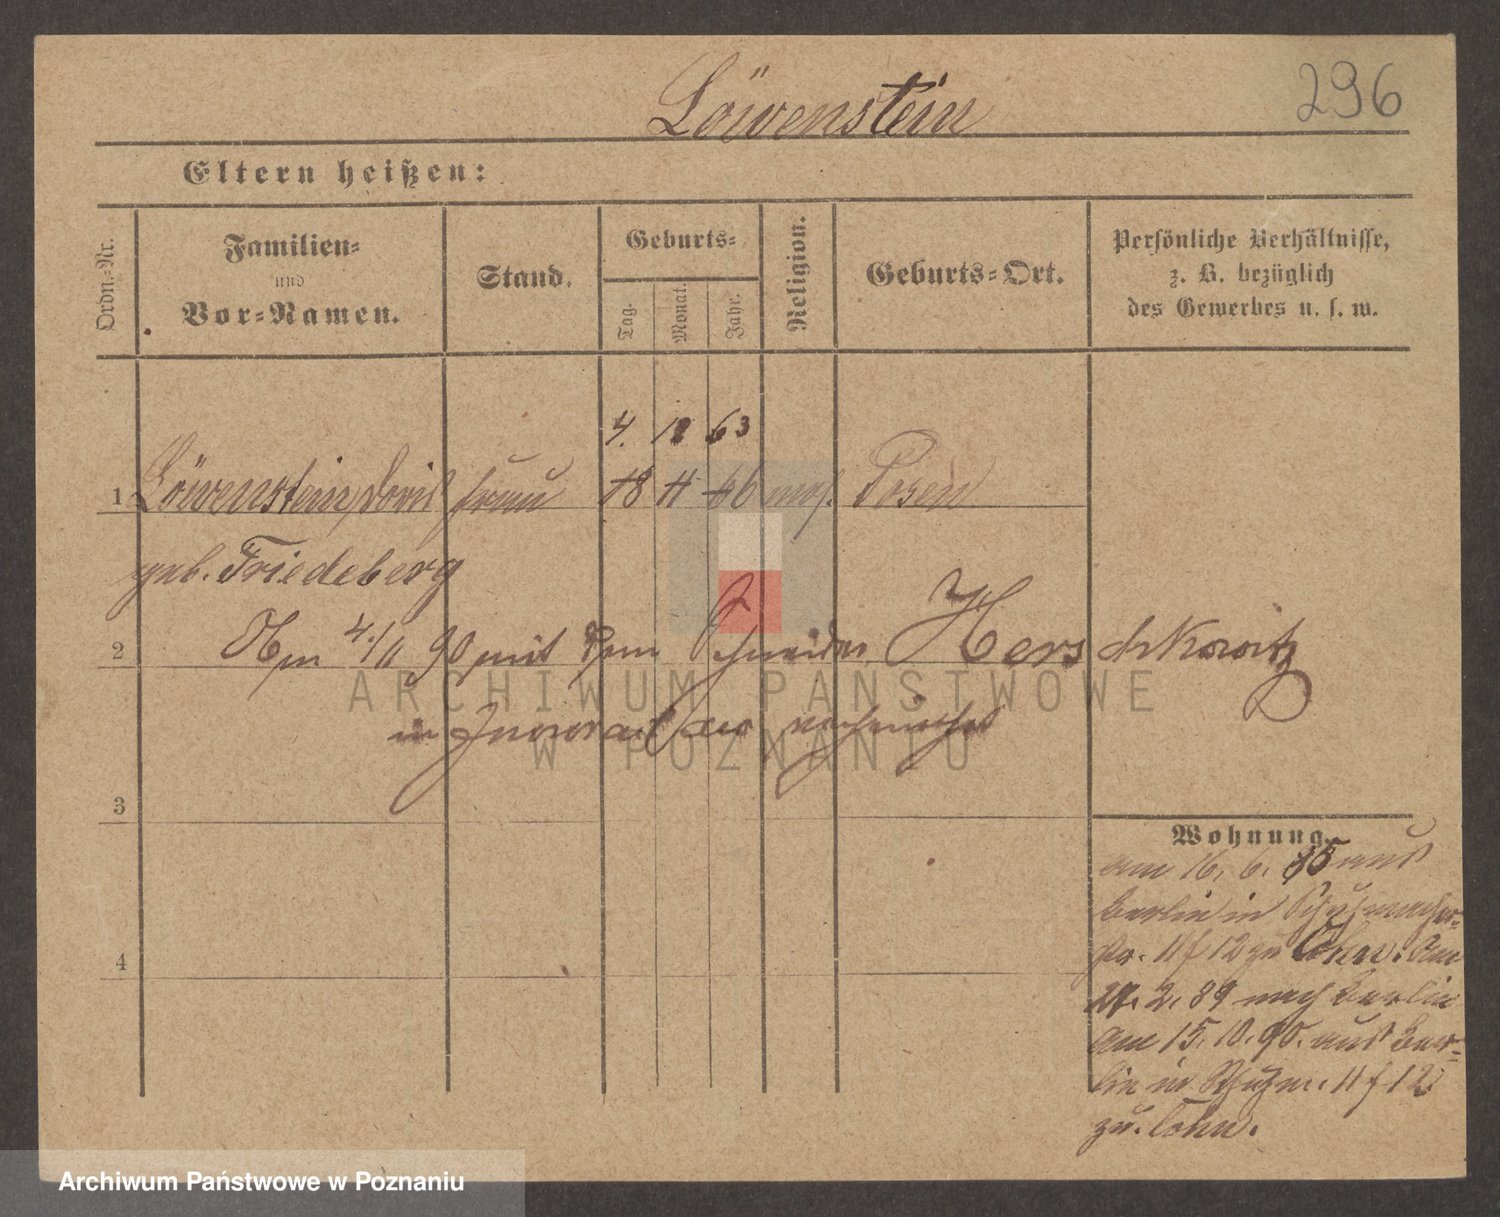 Löwenstein
296
Eltern heißen:
Ordn.-Nr.
Familien-
und
Vor-Namen.
Stand.
Geburts-
Tag.
Monat.
Jahr.
Religion.
Geburts-Ort.
Persönliche Verhältnisse,
z. B. bezüglich
des Gewerbes u. s. w.
4. 12 63
1 Löwenstein Doris Frau 18 11 66 mos. Posen
geb. Friedeberg
2 Am 4./11 90 mit dem Schneider Herschkowitz
in Inowrazlaw verheirathet
3
4
Wohnung.
am 16. 6. 85 aus
Berlin in Schuhmacher-
str. 11 f 12 zu Cohn. Am
27. 2. 89 nach Berlin
am 15. 10. 90. aus Ber-
lin in Schuhm. 11 f 12
zu. Cohn.
ARCHIWUM PAŃSTWOWE
W POZNANIU
Archiwum Państwowe w Poznaniu